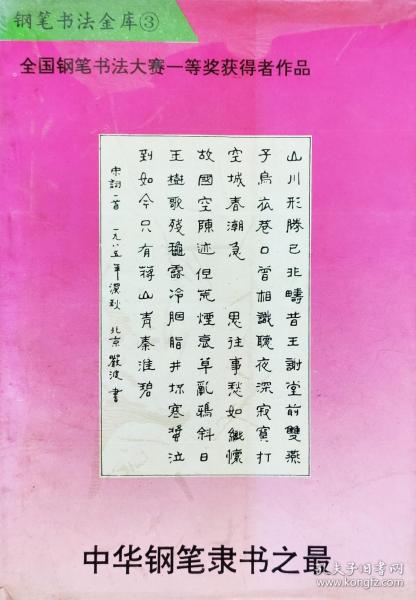 钢笔书法金库③
全国钢笔书法大赛一等奖获得者作品
山川形勝已非疇昔王謝堂前雙燕
子烏衣巷口曾相識聽夜深寂寞打
空城春潮急 思往事愁如織懷
故國空陳迹但荒煙衰草亂鴉斜日
玉樹歌殘穐露冷胭脂井坏寒螿泣
到如今只有蒋山青秦淮碧
宋詞一首 一九八五年深秋 北京 嚴波書
中华钢笔隶书之最
孔夫子旧书网